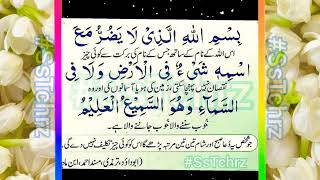 بِسْمِ اللهِ الَّذِىْ لَا يَضُرُّ مَعَ
اس اللہ کے نام کے ساتھ جس کے نام کی برکت سے کوئی چیز
اسْمِهٖ شَىْءٌ فِى الْاَرْضِ وَلَا فِى
نقصان نہیں پہنچا سکتی، زمین کی ہو یا آسمانوں کی اور وہ
السَّمَآءِ وَهُوَ السَّمِيْعُ الْعَلِيْمُ
خوب سننے والا خوب جاننے والا ہے۔
جو شخص یہ دعا صبح اور شام تین تین مرتبہ پڑھے گا اس کو کوئی چیز تکلیف نہیں دے گی۔
(ابو داؤد، ترمذی، مسند احمد، ابن ماجہ
#SsTchrz
#SsTchrz
#SsTchrz